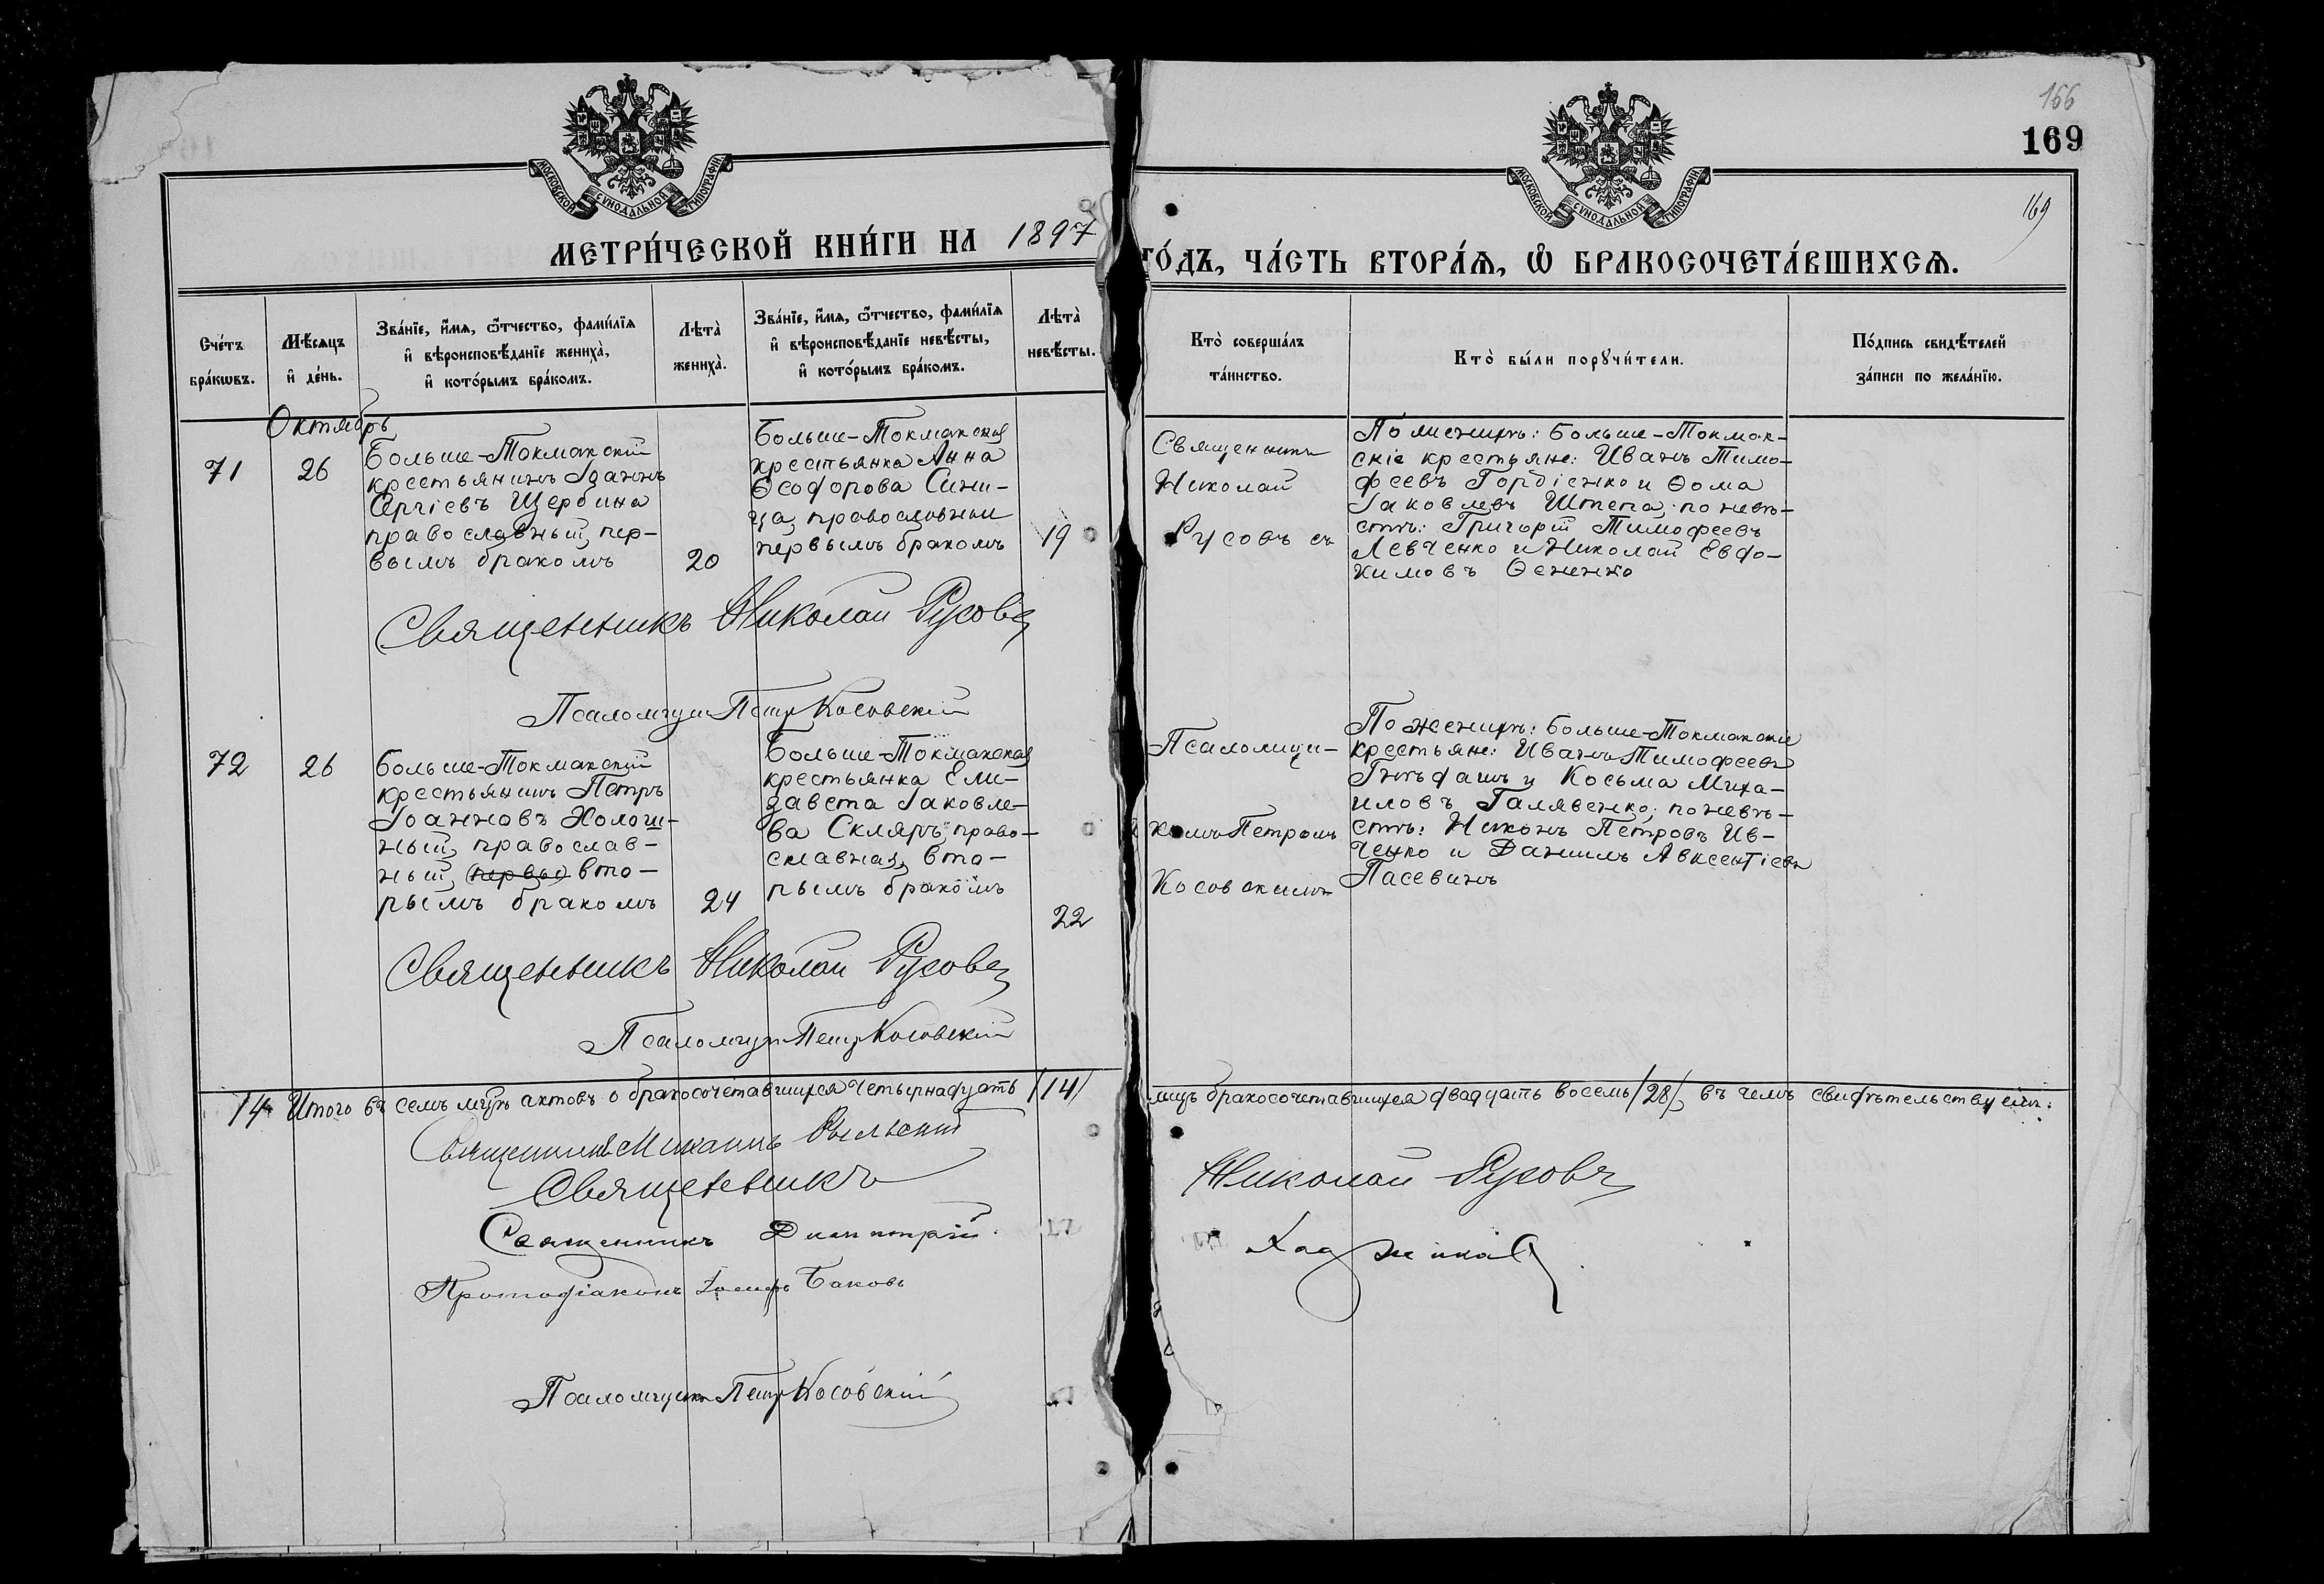 166
169
169
МОСКОВСКОЙ СѴНОДАЛЬНОЙ ТИПОГРАФІИ
МОСКОВСКОЙ СѴНОДАЛЬНОЙ ТИПОГРАФІИ
МЕТРИ́ЧЕСКОЙ КНИ́ГИ НА 1897
ГО́ДЪ, ЧА́СТЬ ВТОРА́Ѧ, Ѽ БРАКОСОЧЕТА́ВШИХСѦ.
Сче́тъ
бра́кѡвъ.
Мѣ́сѧцъ
и҆ де́нь.
Зва́нїе, и҆́мѧ, ѻ҆́тчество, фами́лїѧ
и҆ вѣроисповѣ́данїе жениха̀,
и҆ кото́рымъ бра́комъ.
Лѣта̀
жениха̀.
Зва́нїе, и҆́мѧ, ѻ҆́тчество, фами́лїѧ
и҆ вѣроисповѣ́данїе невѣ́сты,
и҆ кото́рымъ бра́комъ.
Лѣта̀
невѣ́сты.
Кто̀ соверша́лъ
та́инство.
Кто̀ бы́ли порꙋчи́тели.
По́дпись свидѣ́телей
за́писи по жела́нїю.
Октябрь
71
26
Больше-Токмакскій
крестьянинъ Іоаннъ
Сергіевъ Щербина
православный, пер-
вымъ бракомъ
20
Больше-Токмакская
крестьянка Анна
Ѳеодорова Сини-
ца, православная
первымъ бракомъ
19
Священникъ
Николай
Русовъ съ
По женихѣ: Больше-Токмак-
скіе крестьяне: Иванъ Тимо-
феевъ Гордіенко и Ѳома
Іаковлевъ Штепа; по невѣ-
стѣ: Григорій Тимофеевъ
Левченко и Николай Евдо-
кимовъ Ѳененко
Священникъ Николай Русовъ
Псаломщикъ Петръ Косовскій
72
26
Больше-Токмакскій
крестьянинъ Петръ
Іоанновъ Холош-
ный, православ-
ный, (первы) вто-
рымъ бракомъ
24
Больше-Токмакская
крестьянка Ели-
завета Іаковле-
ва Скляръ, право-
славная, вто-
рымъ бракомъ
22
Псаломщи-
комъ Петромъ
Косовскимъ
По женихѣ: Больше-Токмакскіе
крестьяне: Иванъ Тимофеевъ
и Косьма Миха-
иловъ Галявенко; по невѣ-
стѣ: Никонъ Петровъ Ив-
ченко и Даніилъ Авксентіевъ
Пасевинъ
Священникъ Николай Русовъ
Псаломщикъ Петръ Косовскій
14 Итого въ семъ мцѣ актовъ о бракосочетавшихся четырнадцать /14/
лицъ бракосочетавшихся двадцать восемь /28/, въ чемъ свидѣтельствуемъ:
Священникъ Михаилъ
Священникъ Николай Русовъ
Священникъ Димитрій
Протодіаконъ Іосифъ Баковъ
Псаломщикъ Петръ Косовскій